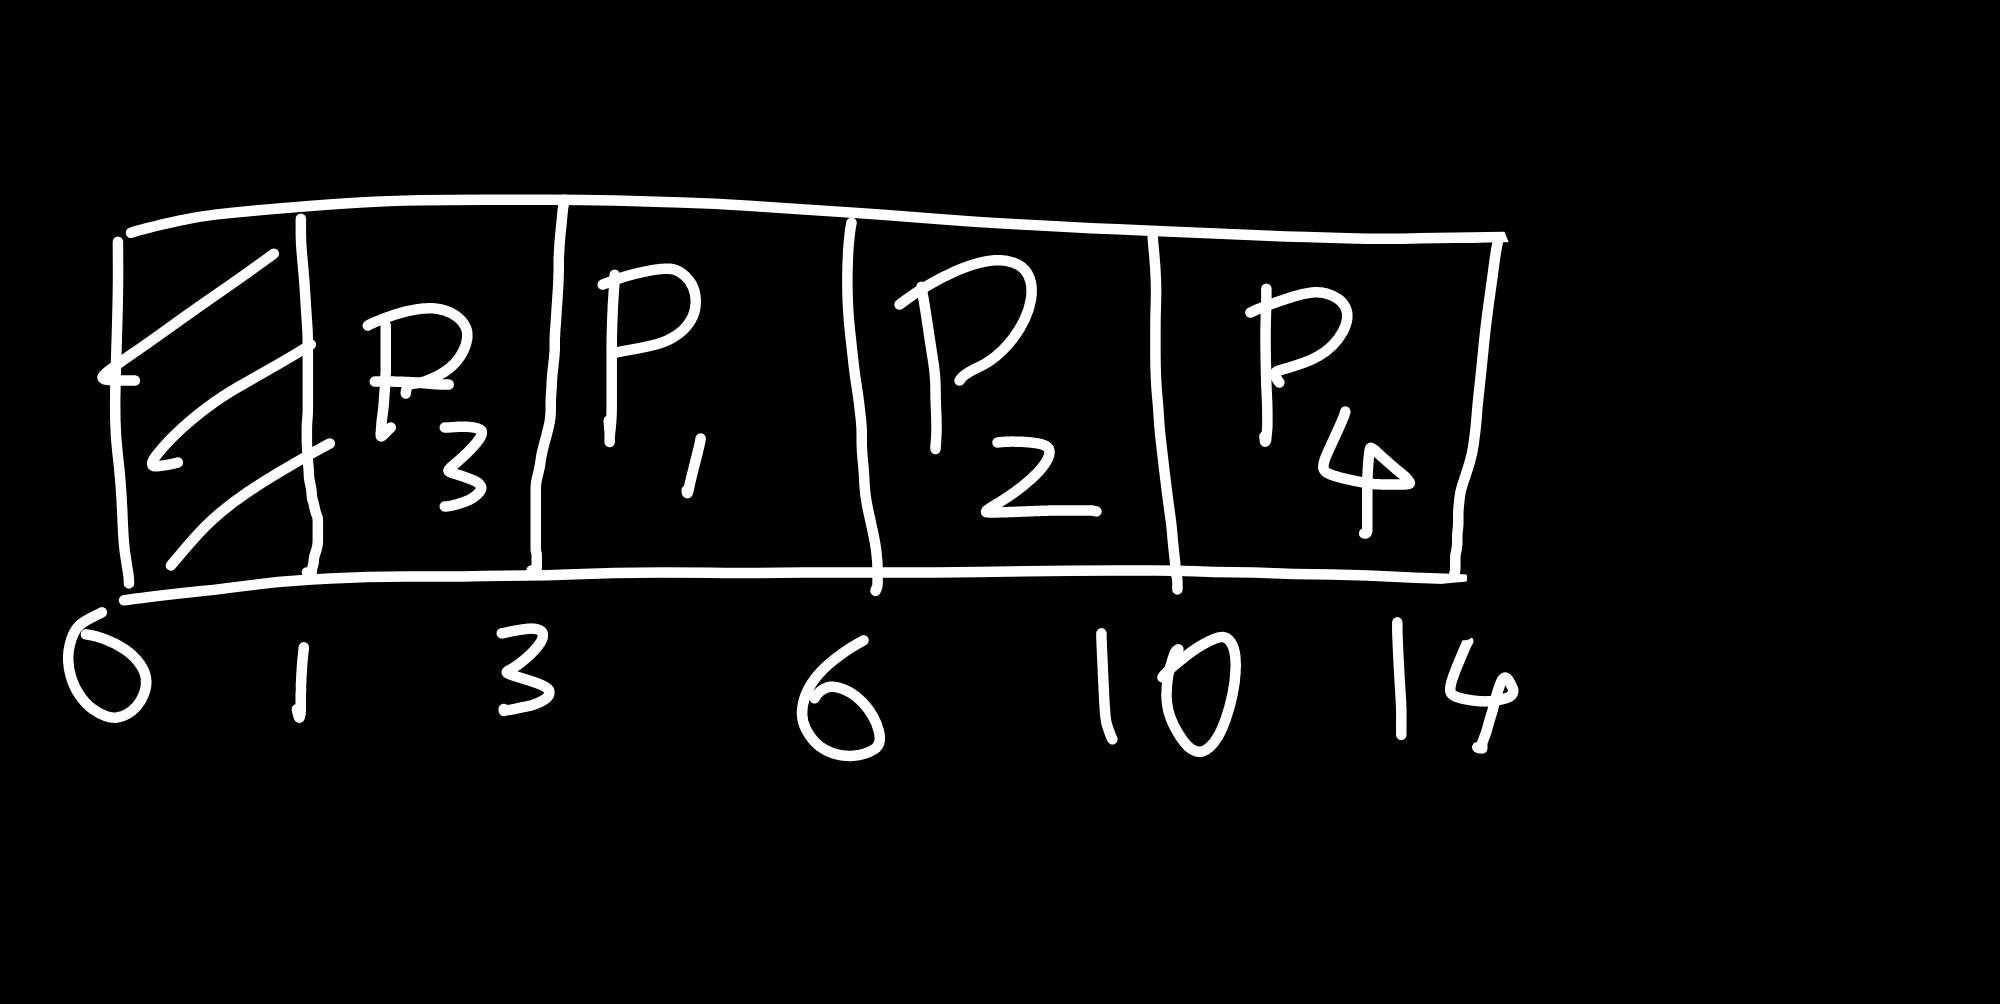 P3 P1 P2 P4
0 1 3 6 10 14